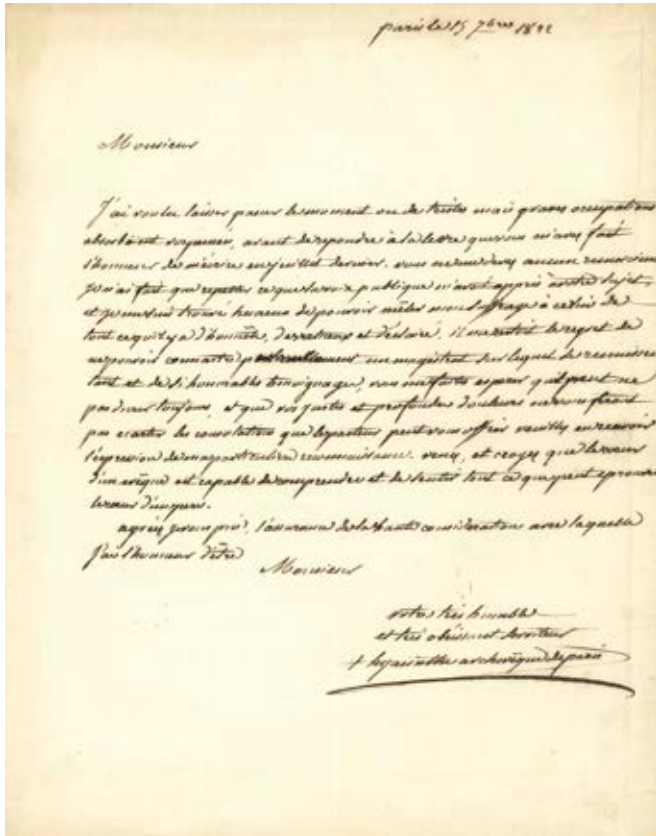 paris le 15 7bre 1822
Monsieur
J'ai voulu laisser passer le moment ou de tristes mais graves occupations
absorboient vos jours, avant de repondre à la lettre que vous m'avez fait
l'honneur de m'écrire en juillet dernier. vous ne me devez aucun
Je n'ai fait que repeter ce que la voix publique m'avoit appris à votre sujet,
et je me suis trouvé heureux de pouvoir mêler mon suffrage à celui de
tout ce qu'il y a d'honnête, de vertueux et d'éclairé. il me restoit le regret de
ne pouvoir connaitre un magistrat sur lequel se reunissent
tant et de si honorables temoignages, vous me faites esperer qu'il peut ne
pas durer toujours, et que vos justes et profondes douleurs ne vous feront
pas ecarter les consolations que le pasteur peut vous offrir veuillez en recevoir
l'expression de ma particuliere reconnaissance. venez, et croyez que le cœur
d'un evêque est capable de comprendre et de sentir tout ce que peut eprouver
le cœur d'un pere.
agreez je vous prie, l'assurance de la haute consideration avec laquelle
J'ai l'honneur d'être
Monsieur
votre très humble
et très obeissant serviteur
+ hyacinthe archevêque de paris